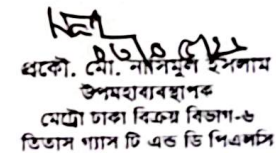 প্রকৌ. মো. নাসিমুল ইসলাম
উপমহাব্যবস্থাপক
মেট্রো ঢাকা বিক্রয় বিভাগ-৬
তিতাস গ্যাস টি এন্ড ডি পিএলসি